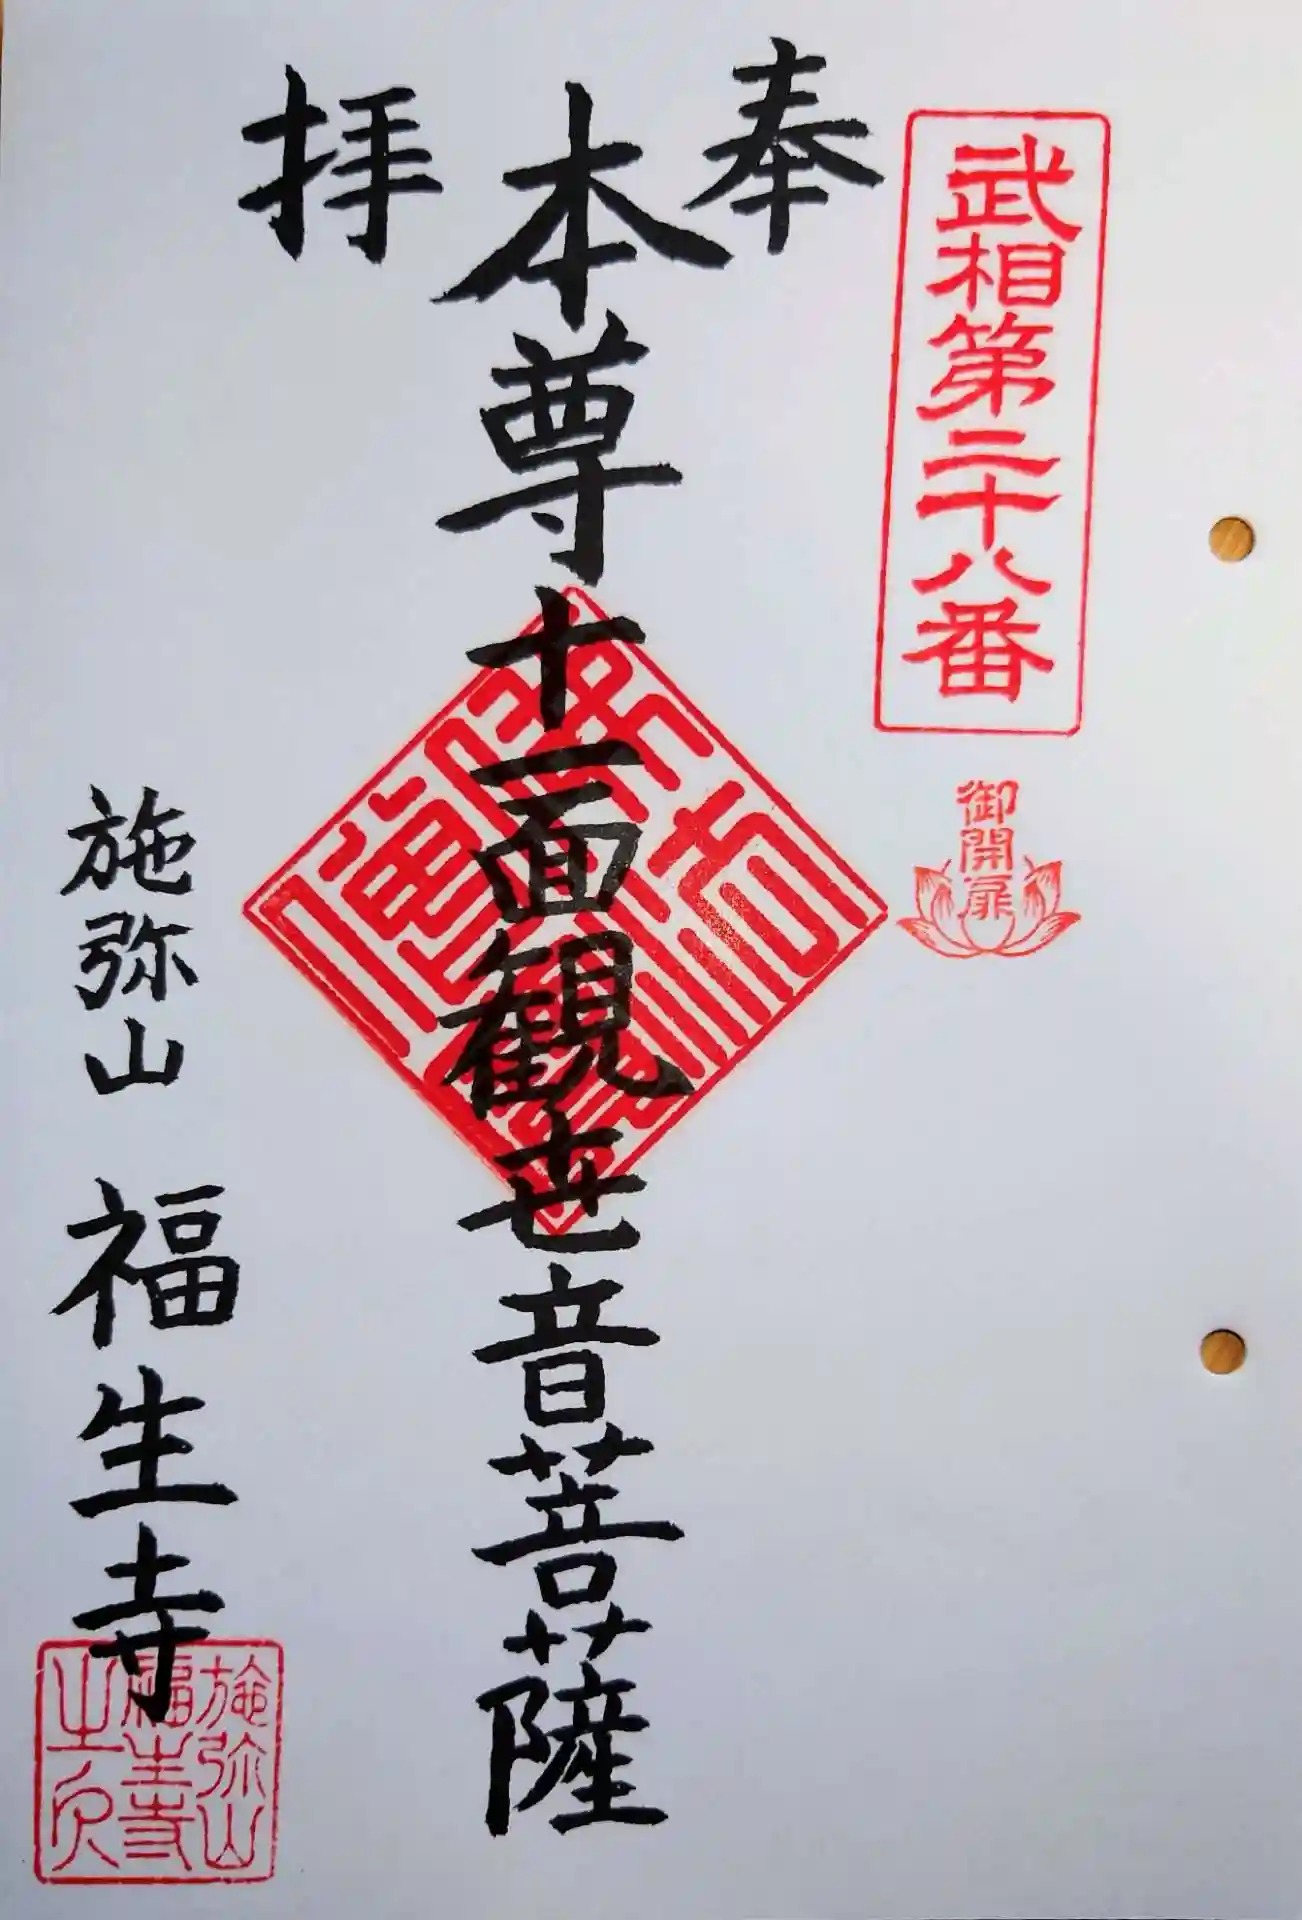 武相第二十八番
御開扉
奉
本尊十一面観世音菩薩
拝
施弥山 福生寺
施弥山
福生寺
之印